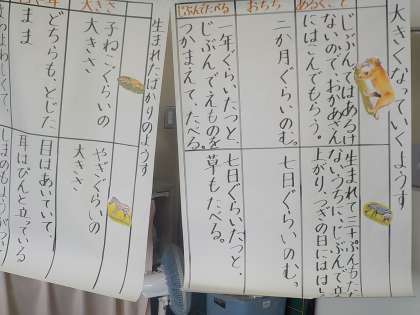 大きくなっていくようす
じぶんではあるけ
ないので、おかあさん
にはこんでもらう。
生まれて三十ぷんもた
ないうちに、じぶんで立ち
上がり、つぎの日には
おちち
二か月ぐらいのむ。
七日ぐらいのむ。
じぶんでたべる
一年ぐらいたつと、
じぶんでえものを
つかまえて、たべる。
七日ぐらいたつと、
草もたべる。
生まれたばかりのようす
大きさ
子ねこぐらいの
大きさ
やぎぐらいの
大きさ
どちらも、とじた
まま
目はあいていて、
耳はぴんと立っている
よわよわしくて、